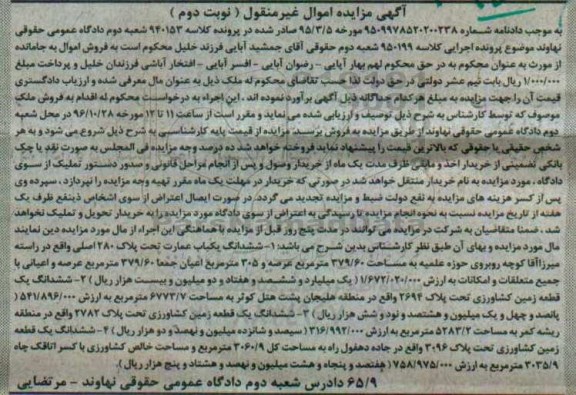 آگهی مزایده اموال غیرمنقول ( نوبت دوم )
به موجب دادنامه شماره ۹۵۰۹۹۷۸۵۲۰۲۰۰۲۳۸ مورخه ۹۵/۳/۵ صادر شده در پرونده کلاسه ۹۴۰۱۵۳ شعبه دوم دادگاه عمومی حقوقی
نهاوند موضوع پرونده اجرایی کلاسه ۹۵۰۱۹۹ شعبه دوم حقوقی آقای جمشید آبایی فرزند خلیل محکوم است به فروش اموال به جامانده
از مورث به عنوان محکوم به در حق محکوم لهم بهار آبایی - رضوان آبایی - افسر آبایی - افتخار آباشی فرزندان خلیل و پرداخت مبلغ
۱/۰۰۰/۰۰۰ ریال بابت نیم عشر دولتی در حق دولت لذا حسب تقاضای محکوم له ملک ذیل به عنوان مال معرفی شده و ارزیاب دادگستری
قیمت آن را جهت مزایده به مبلغ هر کدام جداگانه ذیل آگهی برآورد نموده اند . این اجراء به درخواست محکوم له اقدام به فروش ملک
موصوف که توسط کارشناس به شرح ذیل توصیف و ارزیابی شده می نماید و مقرر است از ساعت ۱۱ تا ۱۲ مورخه ۹۶/۱۰/۲۸ در محل شعبه
دوم دادگاه عمومی حقوقی نهاوند از طریق مزایده به فروش برسد مزایده از قیمت پایه کارشناسی به شرح ذیل شروع می شود و به هر
شخص حقیقی یا حقوقی که بالاترین قیمت را پیشنهاد نماید فروخته خواهد شد ده درصد وجه مزایده فی المجلس به صورت نقد یا چک
بانکی تضمینی از خریدار اخذ و مابقی ظرف مدت یک ماه از خریدار وصول و پس از انجام مراحل قانونی و صدور دستور تملیک از سوی
دادگاه ، مورد مزایده به نام خریدار منتقل خواهد شد در صورتی که خریدار در مهلت یک ماه مقرر تهیه وجه مزایده را نپردازد ، سپرده وی
پس از کسر هزینه های مزایده به نفع دولت ضبط و مزایده تجدید می گردد. در صورت ایصال اعتراض از سوی اشخاص ذینفع ظرف یک
هفته از تاریخ مزایده نسبت به نحوه انجام مزایده تا رسیدگی به اعتراض از سوی دادگاه مورد مزایده را به خریدار تحویل و تملیک نخواهد
شد . ضمنا متقاضیان به شرکت در مزایده می توانند در مدت پنج روز قبل از مزایده با هماهنگی این اجراء از مال مورد مزایده دین نمایند
مال مورد مزایده و بهای آن طبق نظر کارشناس بدین شرح می باشد: ۱-ششدانگ یکباب عمارت تحت پلاک ۲۸۰ اصلی واقع در راسته
میرزاآقا کوچه روبروی حوزه علمیه به مساحت ۳۷۹/۶۰ مترمربع عرصه و ۳۰۵ مترمربع اعیان جمعا ۳۷۹/۶۰ مترمربع عرصه و اعیانی با
جمیع متعلقات و امکانات به ارزش ۱/۶۷۲/۰۲۰/۰۰۰( یک میلیارد و ششصد و هفتاد و دو میلیون و بیست هزار ریال ) ۲- ششدانگ یک
قطعه زمین کشاورزی تحت پلاک ۲۶۹۴ واقع در منطقه هلیجان پشت هتل کوثر به مساحت ۶۷۷۳/۷ مترمربع به ارزش ۵۴۱/۸۹۶/۰۰۰(
پانصد و چهل و یک میلیون و هشتصد و نود و شش هزار ریال) ۳- ششدانگ یک قطعه زمین کشاورزی تحت پلاک ۲۷۸۲ واقع در منطقه
ریشه کمر به مساحت ۵۲۸۳/۲ مترمربع به ارزش ۳۱۶/۹۹۲/۰۰۰( سیصد و شانزده میلیون و نهصد و نود و دو هزار ریال ) ۴- ششدانگ یک قطعه
زمین کشاورزی تحت پلاک ۳۰۹۶ واقع در جاده دهفول راه به مساحت کل ۳۰۶۰/۹ مترمربع و مساحت خالص کشاورزی با کسر اتاقک چاه
۳۰۳۵/۹ مترمربع به ارزش ۷۵۸/۹۷۵/۰۰۰( هفتصد و پنجاه و هشت میلیون و نهصد و هشتاد و پنج هزار ریال ).
۶۵/۹ دادرس شعبه دوم دادگاه عمومی حقوقی نهاوند - مرتضایی